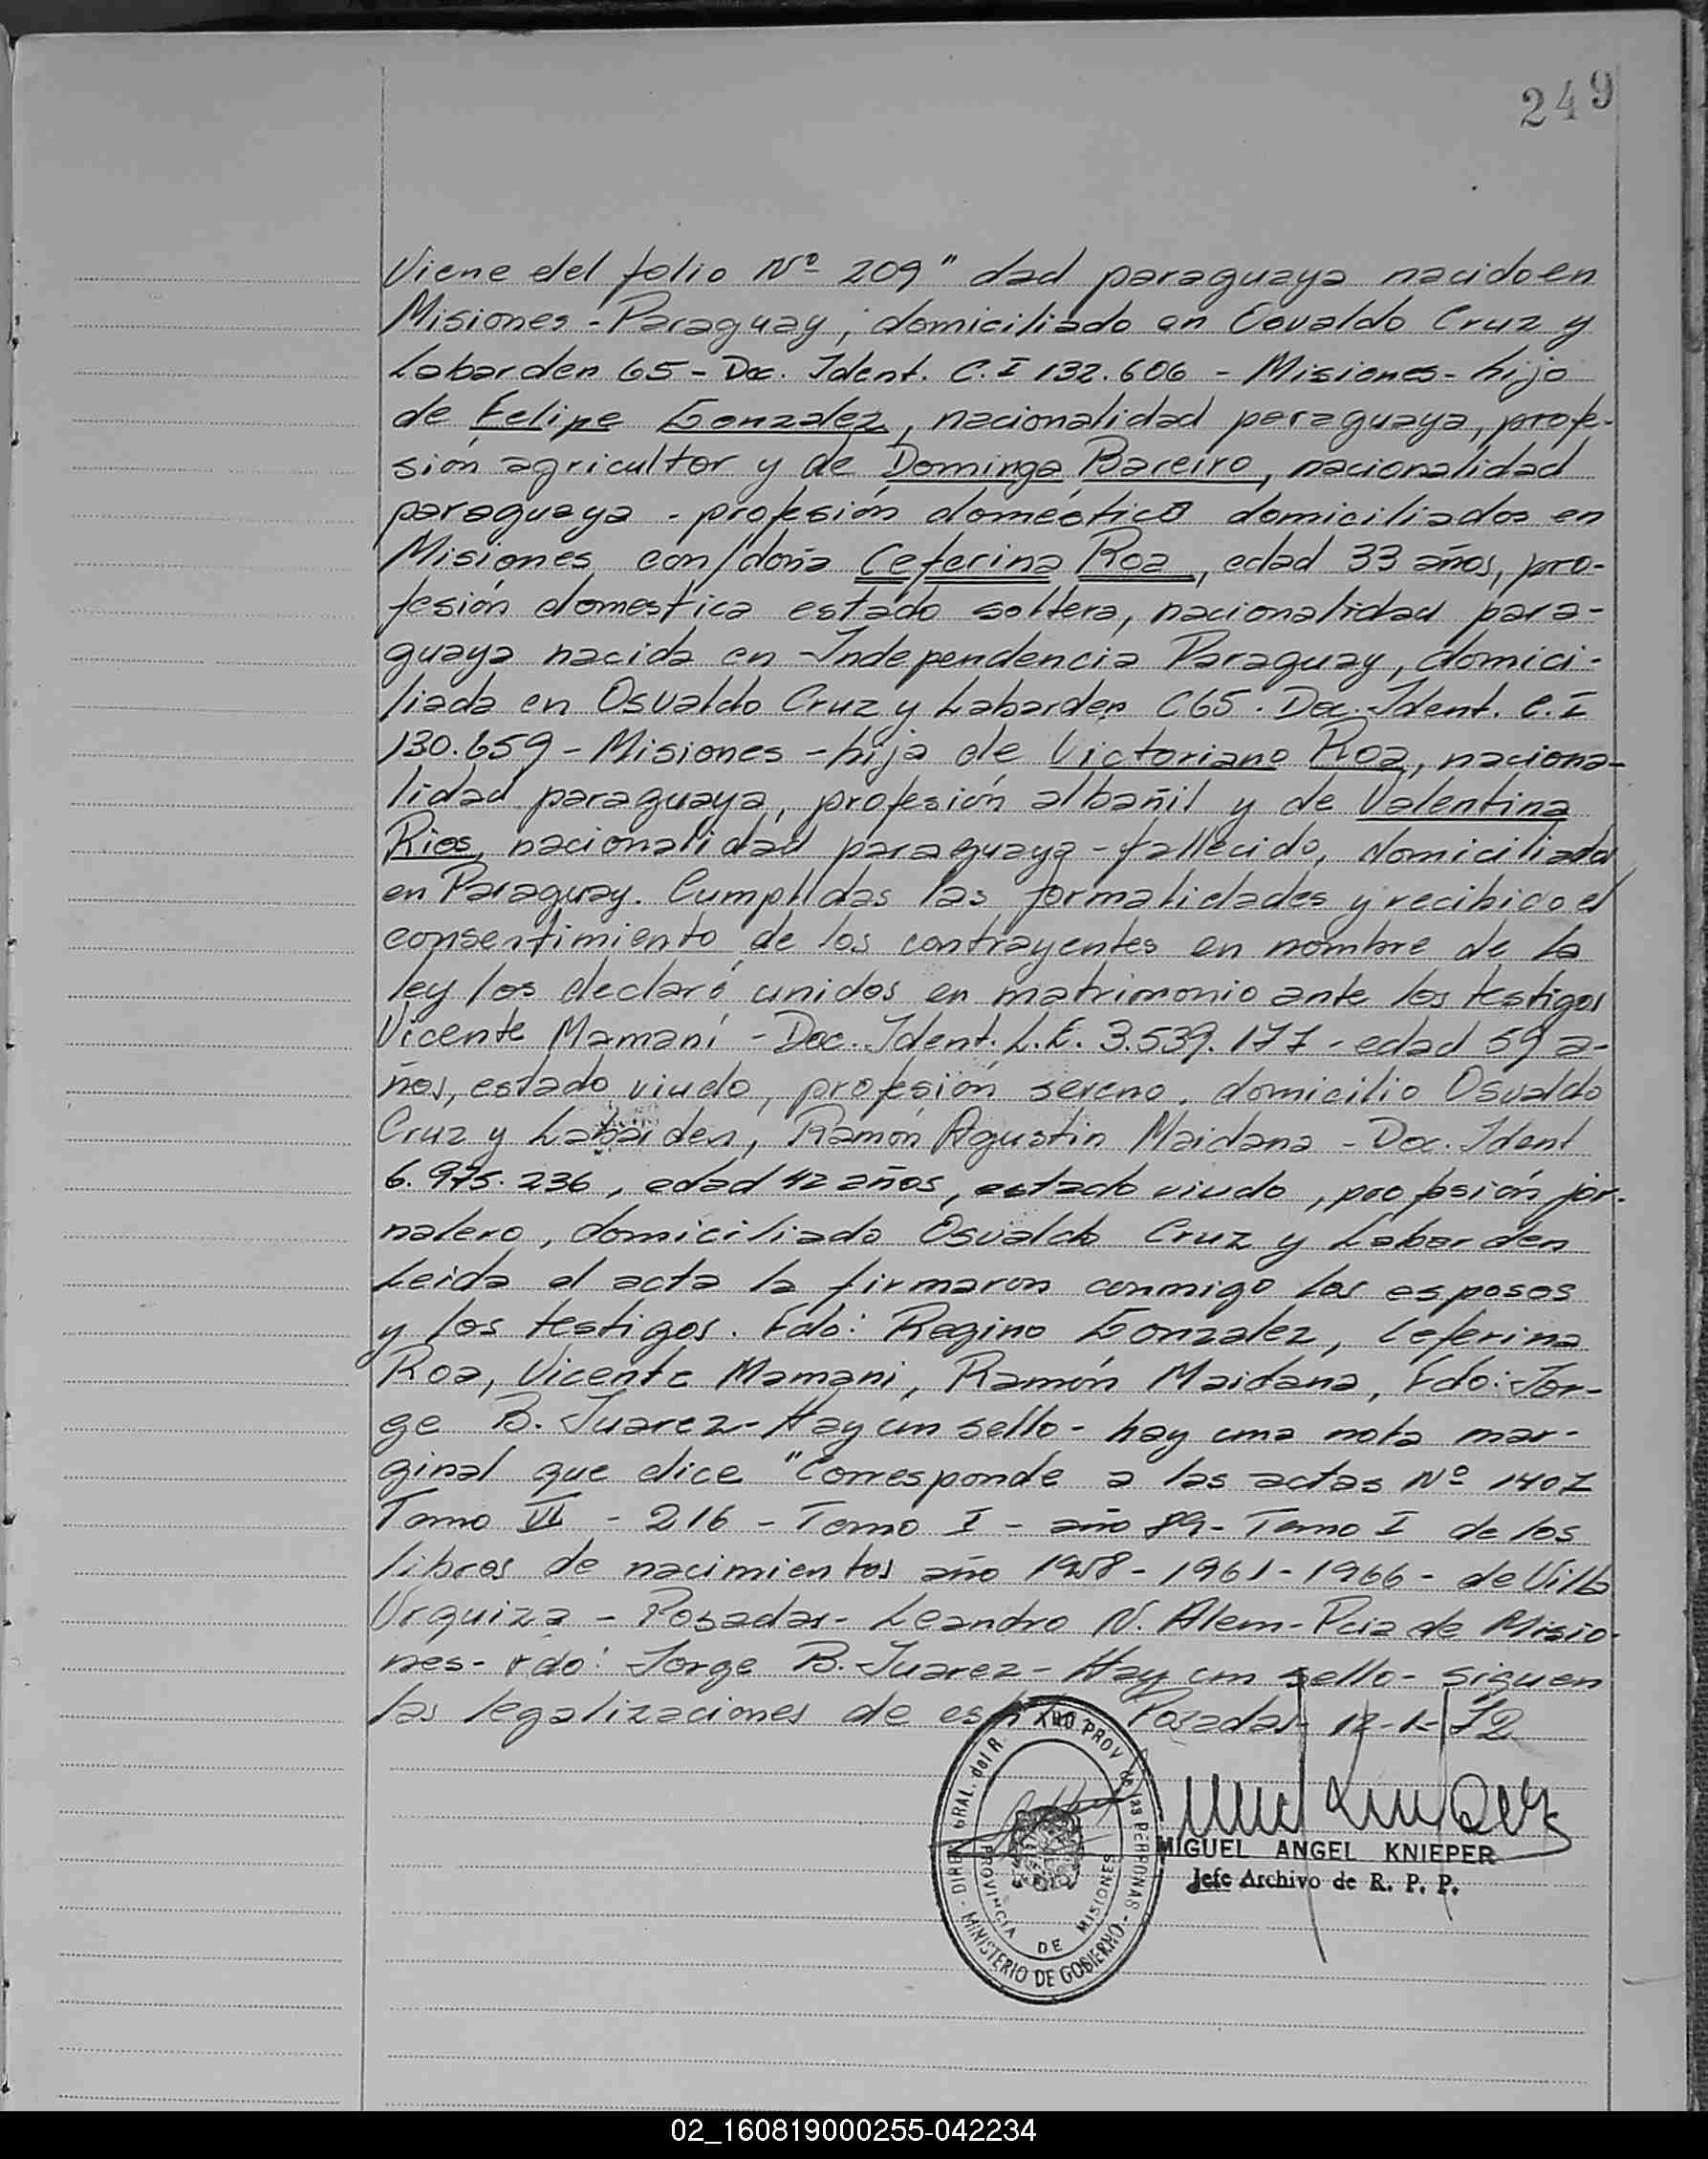 249
Viene del folio Nº 209" dad paraguaya nacido en
Misiones - Paraguay, domiciliado en Osvaldo Cruz y
Labarden 65 - Doc. Ident. C.I 132.606 - Misiones - hijo
de Felipe Gonzalez, nacionalidad paraguaya, profe-
sión agricultor y de Dominga Bareiro, nacionalidad
paraguaya - profesión doméstica domiciliados en
Misiones con/doña Ceferina Roa, edad 33 años, pro-
fesión domestica estado soltera, nacionalidad para-
guaya nacida en Independencia Paraguay, domici-
liada en Osvaldo Cruz y Labarden C65. Doc. Ident. C.I
130.659 - Misiones - hija de Victoriano Roa, naciona-
lidad paraguaya, profesión albañil y de Valentina
Rios, nacionalidad paraguaya - fallecido, domiciliada
en Paraguay. Cumplidas las formalidades y recibido el
consentimiento de los contrayentes en nombre de la
ley los declaró unidos en matrimonio ante los testigos
Vicente Mamaní - Doc. Ident. L.E. 3.539.177 - edad 59 a-
ños, estado viudo, profesión sereno, domicilio Osvaldo
Cruz y Labarden, Ramón Agustin Maidana - Doc. Ident
6.975.236, edad 42 años, estado viudo, profesión jor-
nalero, domiciliado Osvaldo Cruz y Labarden
Leida el acta la firmaron conmigo los esposos
y los testigos. Fdo: Regino Gonzalez, Ceferina
Roa, Vicente Mamani, Ramón Maidana, Fdo: Jor-
ge B. Juarez - Hay un sello - hay una nota mar-
ginal que dice "Corresponde a las actas Nº 1407
Tomo VII - 216 - Tomo I - año 89 - Tomo I de los
libros de nacimientos año 1958 - 1961 - 1966 - de Villa
Urquiza - Posadas - Leandro N. Alem - Pcia de Misio-
nes - Fdo: Jorge B. Juarez - Hay un sello - siguen
las legalizaciones de Posadas 12-1-72
DIREC. GRAL. del R PROV de las PERSONAS
MINISTERIO DE GOBIERNO
PROVINCIA DE MISIONES
MIGUEL ANGEL KNIEPER
Jefe Archivo de R. P. P.
02_160819000255-042234